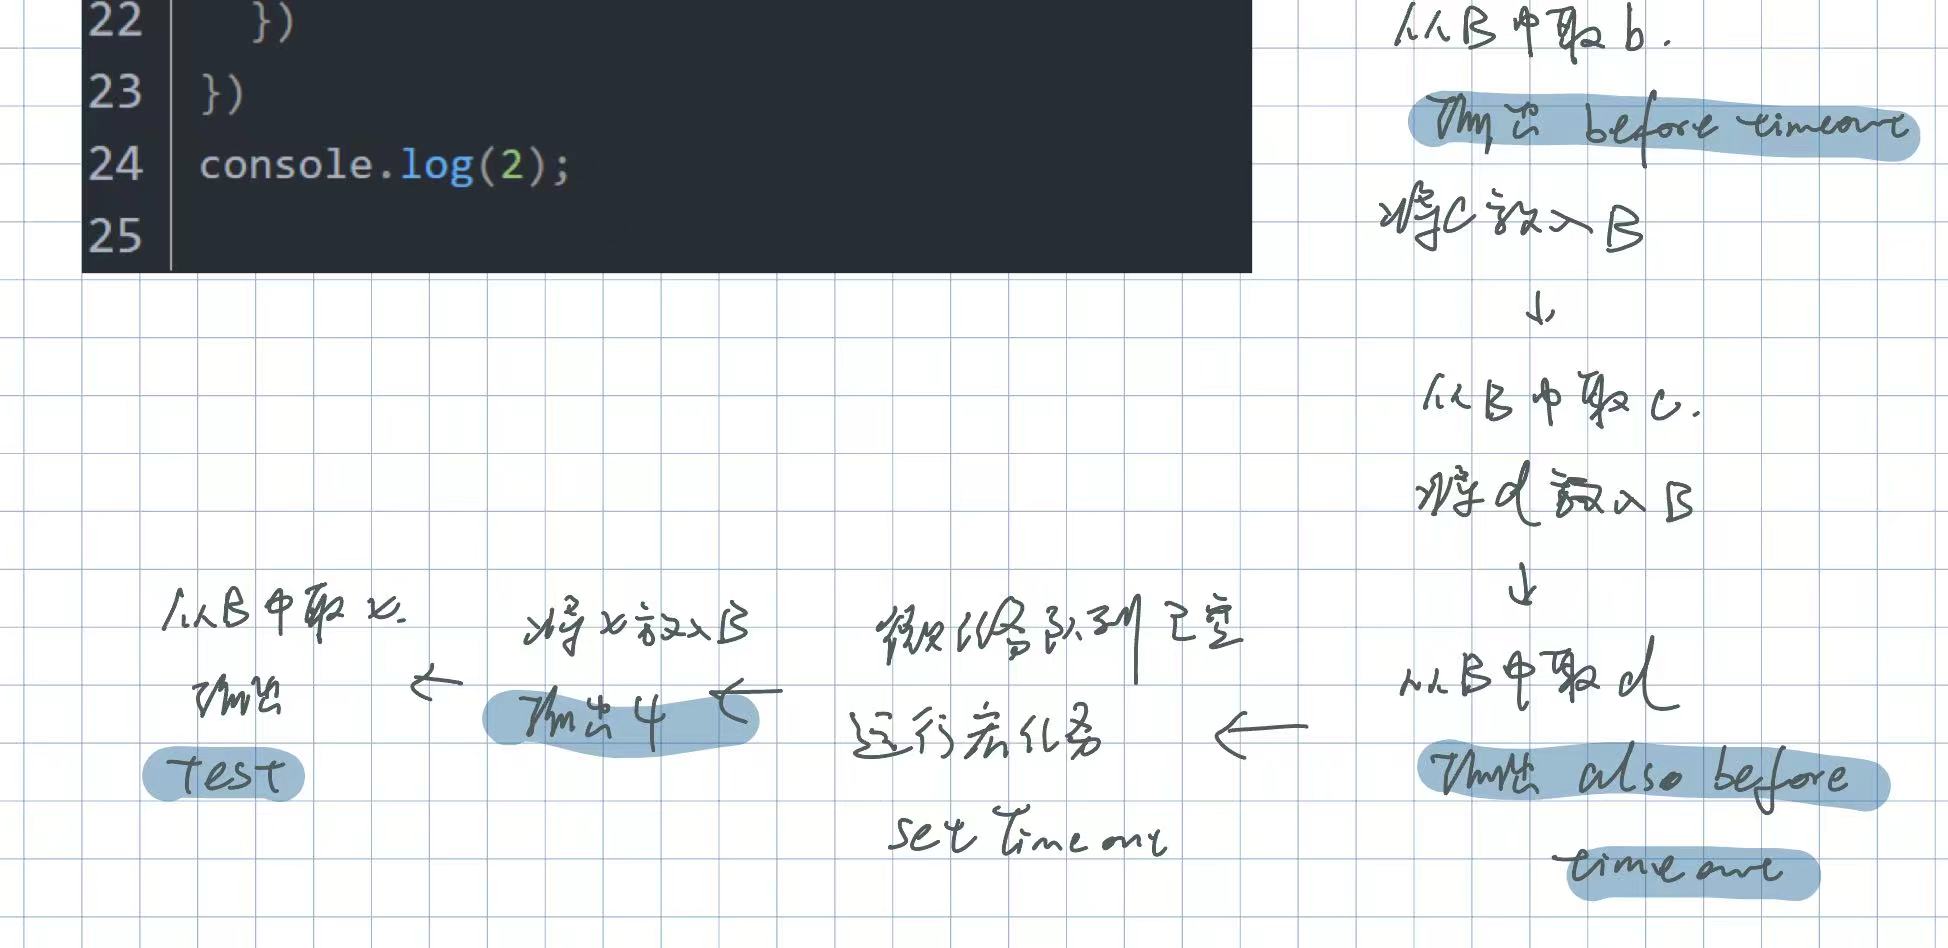 22 })
23 })
24 console.log(2);
25
从B中取b.
输出 before timeout
将c放入B
↓
从B中取c.
将d放入B
↓
从B中取d
输出 also before
timeout
←
微任务队列已空
运行宏任务
set Timeout
←
将x放入B
输出4
←
从B中取x.
输出
test